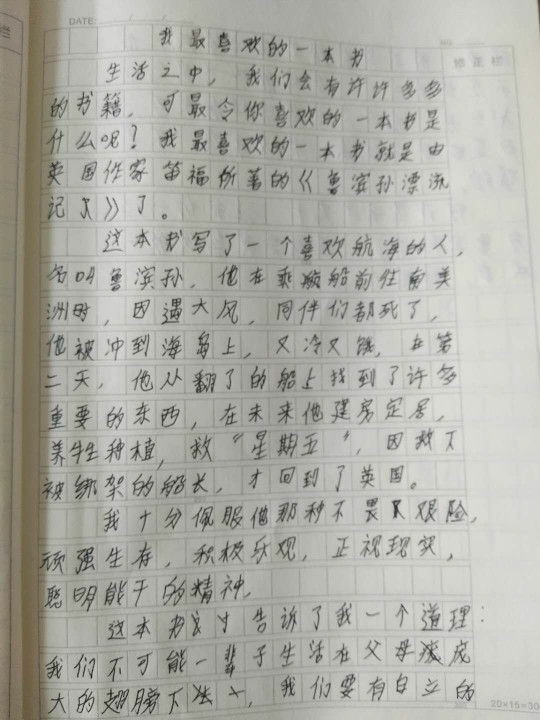 DATE: / /
我最喜欢的一本书
修正栏
生活之中，我们会有许许多多
的书籍，可最令你喜欢的一本书是
什么呢？我最喜欢的一本书就是由
英国作家笛福所著的《鲁滨孙漂流
记》了。
这本书写了一个喜欢航海的人，
名叫鲁滨孙，他在乘船前往南美
洲时，因遇大风，同伴们都死了，
他被冲到海岛上，又冷又饿，在第
二天，他从翻了的船上找到了许多
重要的东西，在未来他建房定居，
养牛种植，救“星期五”，因救下
被绑架的船长，才回到了英国。
我十分佩服他那种不畏艰险，
顽强生存，积极乐观，正视现实，
聪明能干的精神。
这本书告诉了我一个道理：
我们不可能一辈子生活在父母
大的翅膀下，我们要有自立的
20×15=30